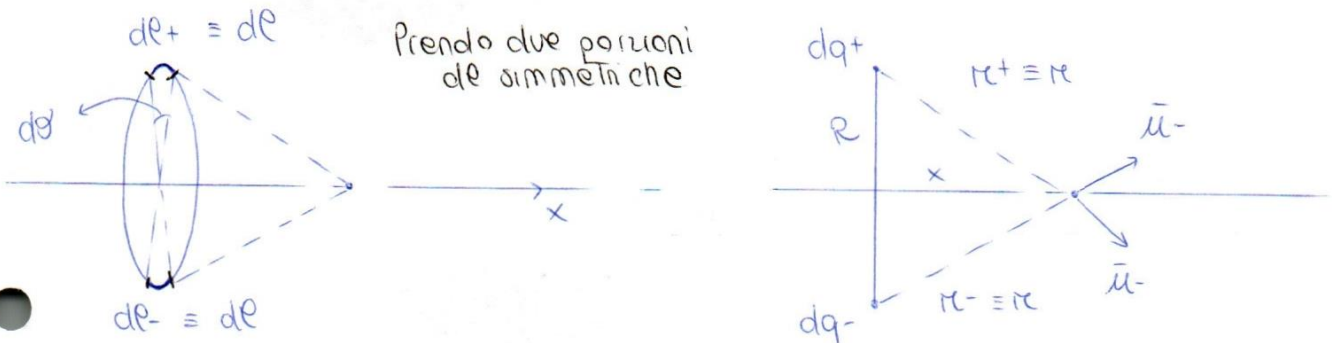 dl+ ≡ dl
Prendo due porzioni
dl simmetriche
dθ
x
dl- ≡ dl
dq+
r+ ≡ r
R
x
ū-
ū-
r- ≡ r
dq-